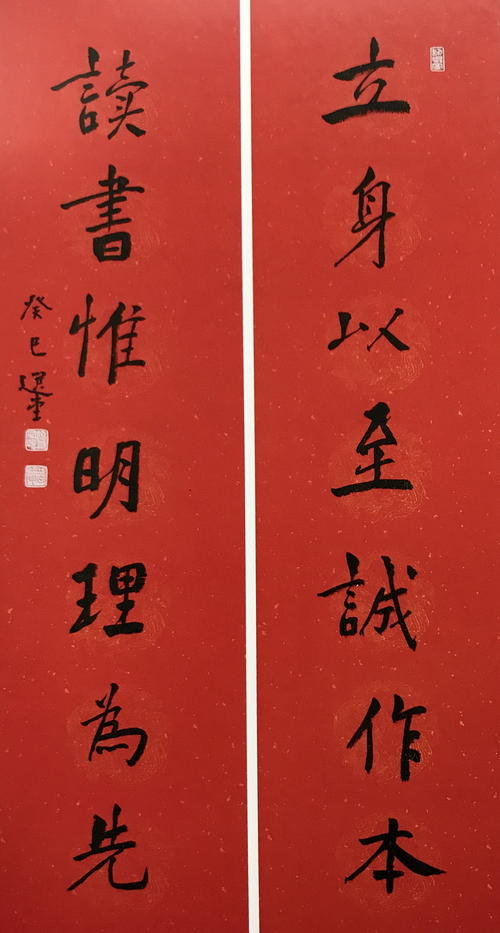 立身以至誠作本
讀書惟明理為先
癸巳選堂